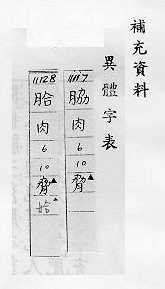 補充資料
異體字表
1117
脇
肉
6
10
脅▲
1128
胎
肉
6
10
脅▲